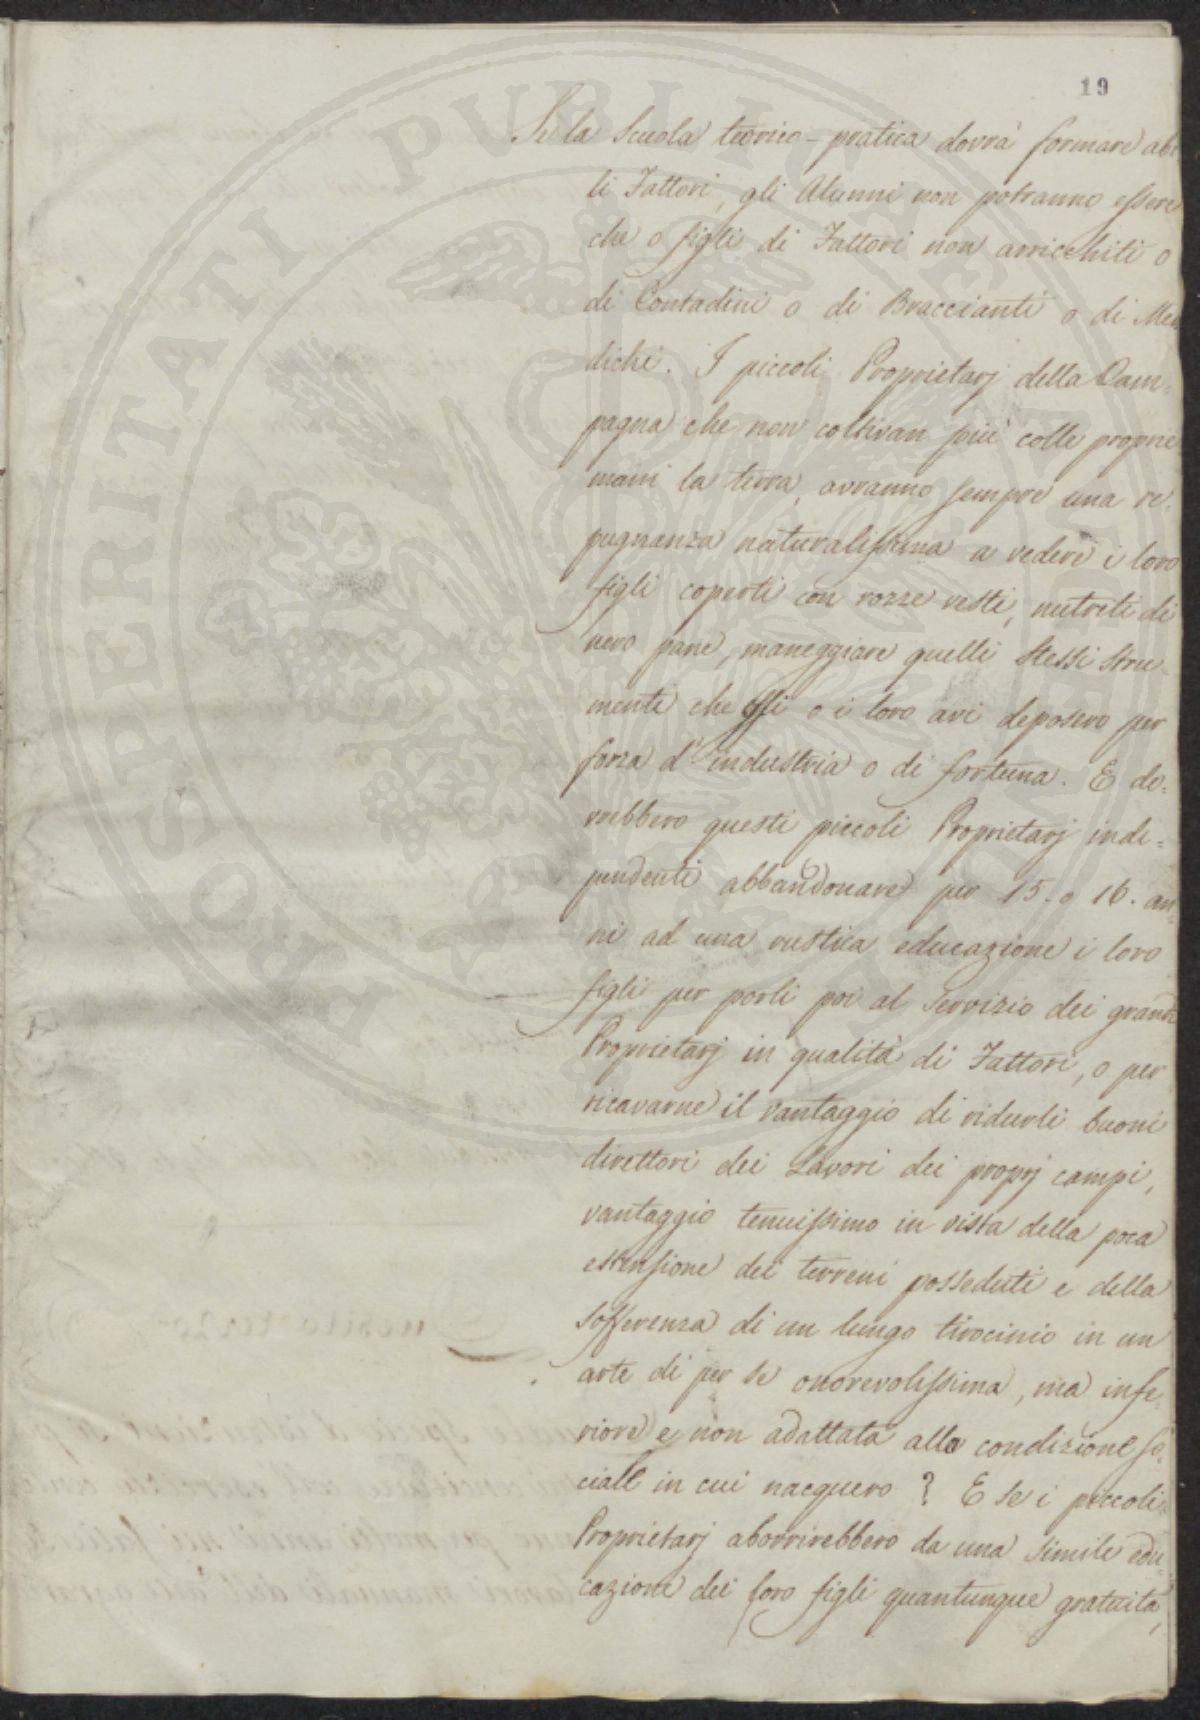 19
Se la Scuola teorico-pratica dovrà formare abi-
li Fattori, gli Alunni non potranno essere
che o figli di Fattori non arricchiti o
di Contadini o di Braccianti o di Men
dichi. I piccoli Proprietarj della Cam=
pagna che non coltivan più colle proprie
mani la terra, avranno sempre una re=
pugnanza naturalissima a vedere i loro
figli coperti con rozze vesti, nutriti di
nero pane, maneggiare quelli stessi stru=
menti che essi o i loro avi deposero per
forza d'industria o di fortuna. E do=
vrebbero questi piccoli Proprietarj indi=
pendenti abbandonare per 15. o 16. an=
ni ad una rustica educazione i loro
figli per porli poi al Servizio dei grandi
Proprietarj in qualità di Fattori, o per
ricavarne il vantaggio di ridurli buoni
direttori dei Lavori dei proprj campi,
vantaggio tenuissimo in vista della poca
estensione dei terreni posseduti e della
sofferenza di un lungo tirocinio in un
arte di per se onorevolissima, ma infe=
riore e non adattata alla condizione so=
ciale in cui nacquero? E se i piccoli
Proprietarj aborrirebbero da una simile edu=
cazione dei loro figli quantunque gratuita,
PROSPERITATI PUBLICAE AUGENDAE